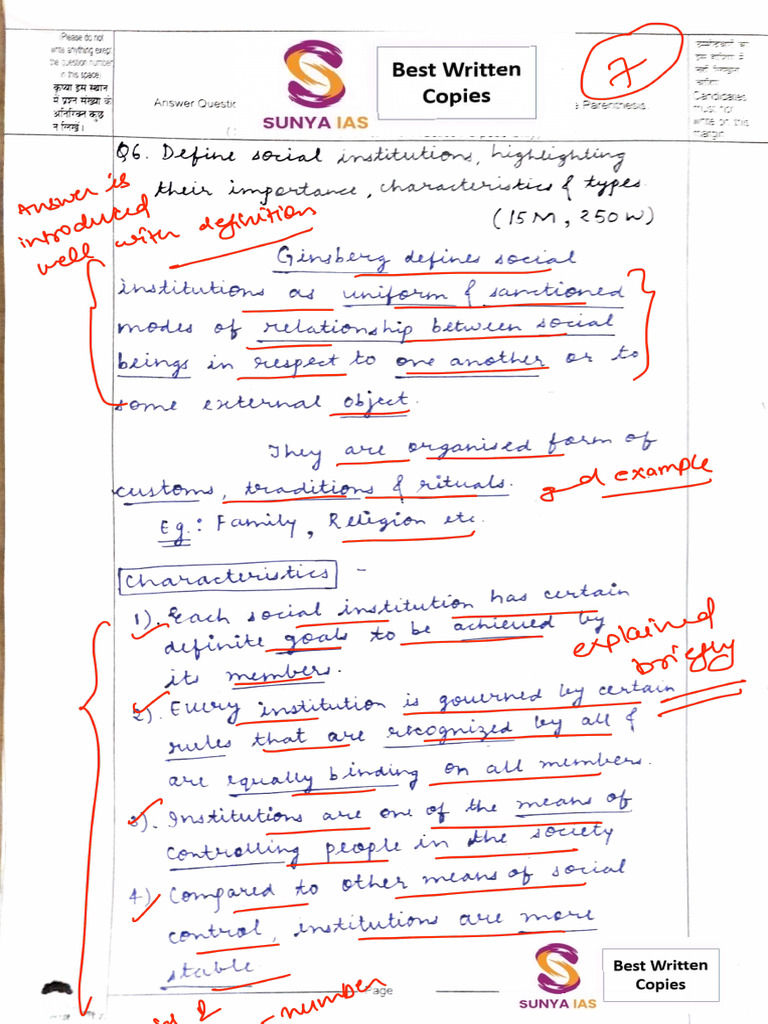 Please do not
write anything exept
the question number
in this space)
कृप्या इस स्थान
में प्रश्न संख्या के
अतिरिक्त कुछ
न लिखें।
SUNYA IAS
Best Written
Copies
7
Answer Questic
e Parenthesis.
Candidates
must not
write on this
margin
Q6. Define social institutions, highlighting
their importance, characteristics & types.
(15M, 250W)
Answer is
introduced
well with definition
Ginsberg defines social
institutions as uniform & sanctioned
modes of relationship between social
beings in respect to one another or to
some external object.
They are organised form of
customs, traditions & rituals.
Eg.: Family, Religion etc.
good example
Characteristics -
1). Each social institution has certain
definite goals to be achieved by
its members.
explained
briefly
2). Every institution is governed by certain
rules that are recognized by all &
are equally binding on all members.
3). Institutions are one of the means of
controlling people in the society
4) Compared to other means of social
control, institutions are more
stable
number
Page
SUNYA IAS
Best Written
Copies